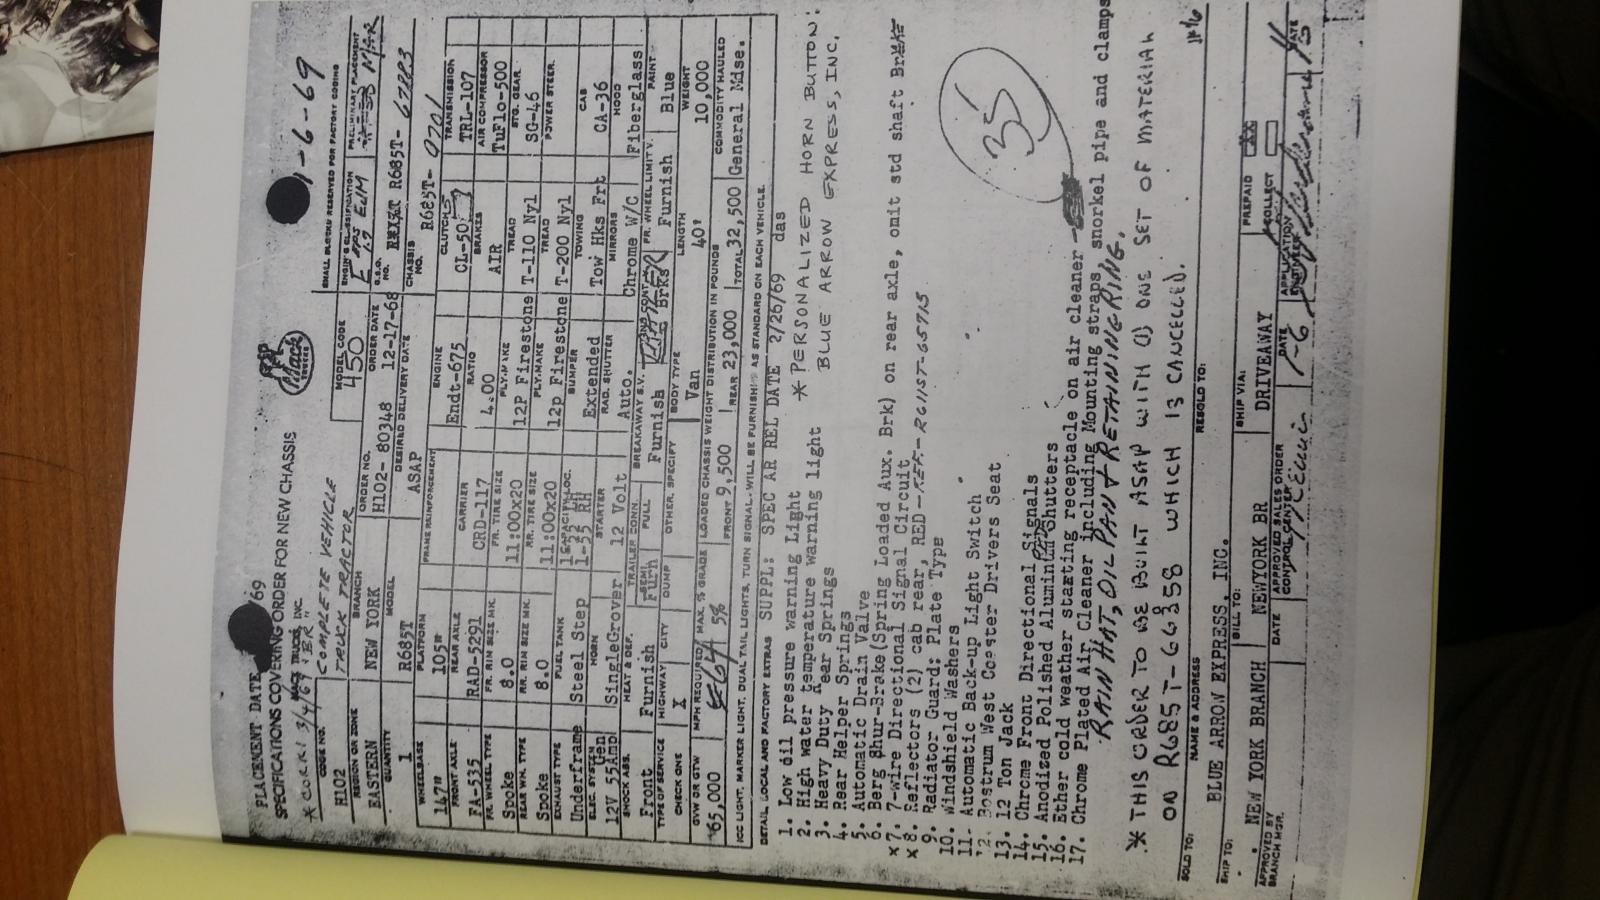 PLACEMENT DATE '69
SPECIFICATIONS COVERING ORDER FOR NEW CHASSIS
MACK TRUCKS, INC.
Mack TRUCKS
1-6-69
SMALL BLOCKS RESERVED FOR FACTORY CODING
CODE NO. COMPLETE VEHICLE
H102 TRUCK TRACTOR
MODEL CODE
450
ENGIN'G CLASSIFICATION PRELIMINARY PLACEMENT
REGION OR ZONE BRANCH ORDER NO. ORDER DATE G.S.O. NO.
EASTERN NEW YORK H102- 80348 12-17-68 R685T- 67223
QUANTITY MODEL DESIRED DELIVERY DATE CHASSIS NO.
1 R685T ASAP R685T-
WHEELBASE PLATFORM FRAME REINFORCEMENT ENGINE CLUTCH TRANSMISSION
147" 105" Endt-675 CL-50 TRL-107
FRONT AXLE REAR AXLE CARRIER RATIO BRAKES AIR COMPRESSOR
FA-535 RAD-5291 CRD-117 4.00 AIR TuFlo-500
FR. WHEEL TYPE FR. RIM SIZE MK. FR. TIRE SIZE PLY-MAKE TREAD STG. GEAR
Spoke 8.0 11:00x20 12P Firestone T-110 Nyl SG-46
REAR WH. TYPE RR. RIM SIZE MK. RR. TIRE SIZE PLY-MAKE TREAD POWER STEER.
Spoke 8.0 11:00x20 12p Firestone T-200 Nyl
EXHAUST TYPE FUEL TANK CAPACITY-LOC. BUMPER TOWING CAB
Underframe Steel Step Extended Tow Hks Frt CA-36
ELEC. SYSTEM HORN STARTER RAD. SHUTTER MIRRORS HOOD
12V 55Amp Gen SingleGrover 12 Volt Auto. Chrome W/C Fiberglass
SHOCK ABS. HEAT & DEF. TRAILER CONN. BREAKAWAY S.V. FR. WHEEL LIMIT V. PAINT
Front Furnish SEMI Furh FULL Furnish Brks Furnish Blue
TYPE OF SERVICE HIGHWAY CITY DUMP OTHER, SPECIFY BODY TYPE LENGTH WEIGHT
CHECK ONE X Van 40' 10,000
GVW OR GTW MPH REQUIRED MAX. % GRADE LOADED CHASSIS WEIGHT DISTRIBUTION IN POUNDS COMMODITY HAULED
65,000 64 5% FRONT 9,500 REAR 23,000 TOTAL 32,500 General Mdse.
ICC LIGHT, MARKER LIGHT, DUAL TAIL LIGHTS, TURN SIGNAL-WILL BE FURNISHED AS STANDARD ON EACH VEHICLE.
DETAIL LOCAL AND FACTORY EXTRAS SUPPL: SPEC AR REL DATE 2/26/69 das
1. Low oil pressure warning Light
2. High water temperature warning light
3. Heavy Duty Rear Springs
4. Rear Helper Springs
5. Automatic Drain Valve
6. Berg Shur-Brake(Spring Loaded Aux. Brk) on rear axle, omit std shaft Brk
x 7. 7-wire Directional Signal Circuit
x 8. Reflectors (2) cab rear, RED-REF.-RG11ST-65715
9. Radiator Guard: Plate Type
10. Windshield Washers
11- Automatic Back-up Light Switch
12. Bostrum West Coaster Drivers Seat
13. 12 Ton Jack
14. Chrome Front Directional Signals
15. Anodized Polished Aluminum Shutters
16. Ether cold weather starting receptacle on air cleaner
17. Chrome Plated Air Cleaner including Mounting straps snorkel pipe and clamps
RAIN HAT, OIL PAN & RETAINING RING.
* PERSONALIZED HORN BUTTON:
BLUE ARROW EXPRESS, INC.
35
* THIS ORDER TO BE BUILT ASAP WITH (1) ONE SET OF MATERIAL
ON R685T-66258 WHICH IS CANCELLED.
SOLD TO: NAME & ADDRESS RESOLD TO:
BLUE ARRON EXPRESS, INC.
SHIP TO: BILL TO: SHIP VIA: PREPAID
NEW YORK BRANCH NEWYORK BR DRIVEAWAY COLLECT
APPROVED BY BRANCH MGR. DATE APPROVED SALES ORDER CONTROL CENTER DATE APPLICATION ENGINEER DATE
1-6